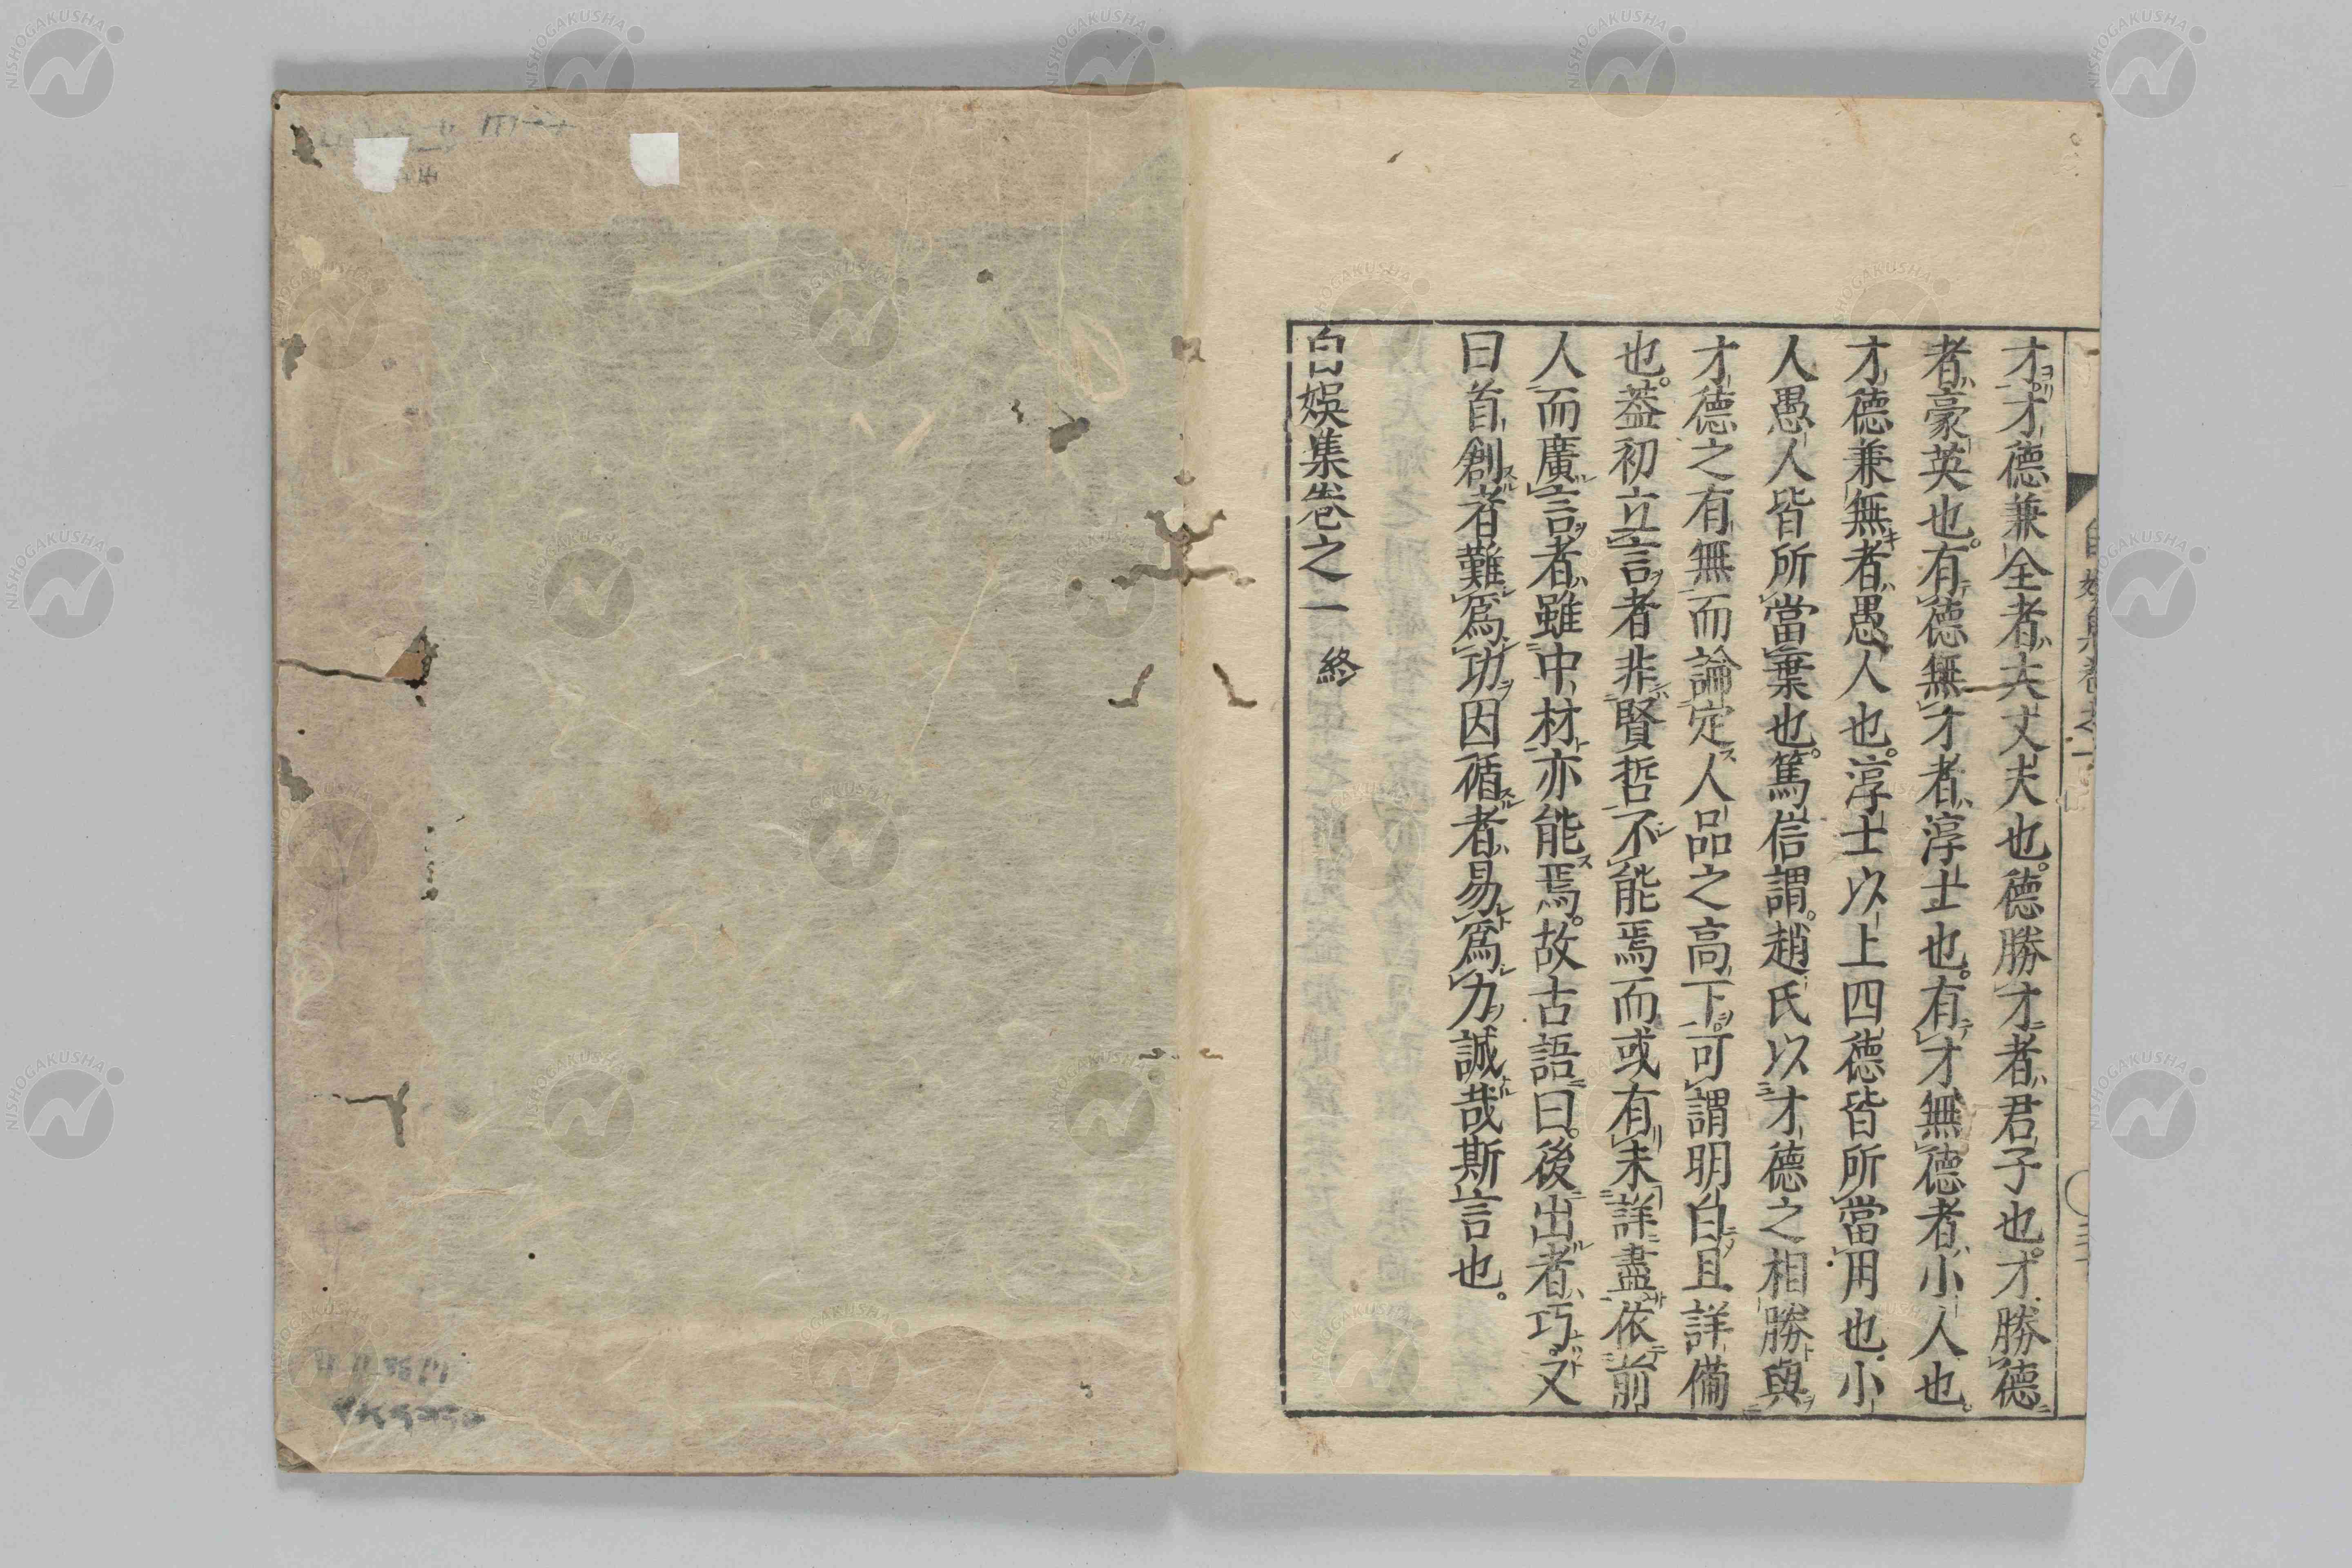 才才德兼全者大丈夫也。德勝才者君子也。才勝德
者豪英也。有德無才者淳士也。有才無德者小人也。
才德兼無者愚人也。淳士以上四德皆所當用也小
人愚人皆所當棄也。篤信謂。趙氏以才德之相勝與
才德之有無而論定人品之高下。可謂明白且詳備
也。蓋初立言者非賢哲不能焉而或有未詳盡依前
人而廣言者雖中材亦能焉。故古語曰。後出者巧。又
曰首創者難爲功因循者易爲力誠哉斯言也。
自娛集卷之一終
NISHOGAKUSHA